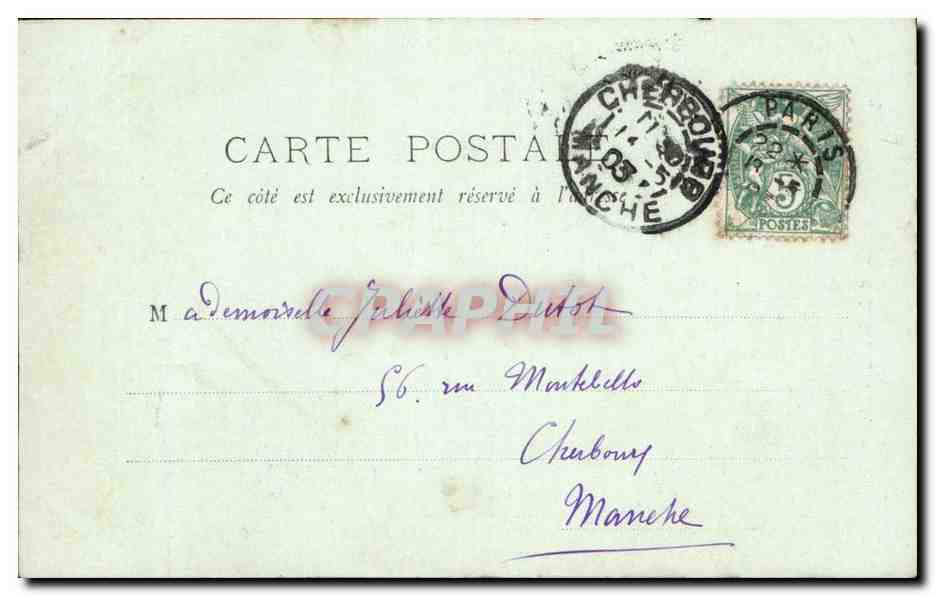 CARTE POSTALE
Ce côté est exclusivement réservé à l'adresse
CHERBOURG
MANCHE
03
PARIS
5
POSTES
Mademoiselle Juliette Dutot
CPAPHIL
56. rue Montebello
Cherbourg
Manche